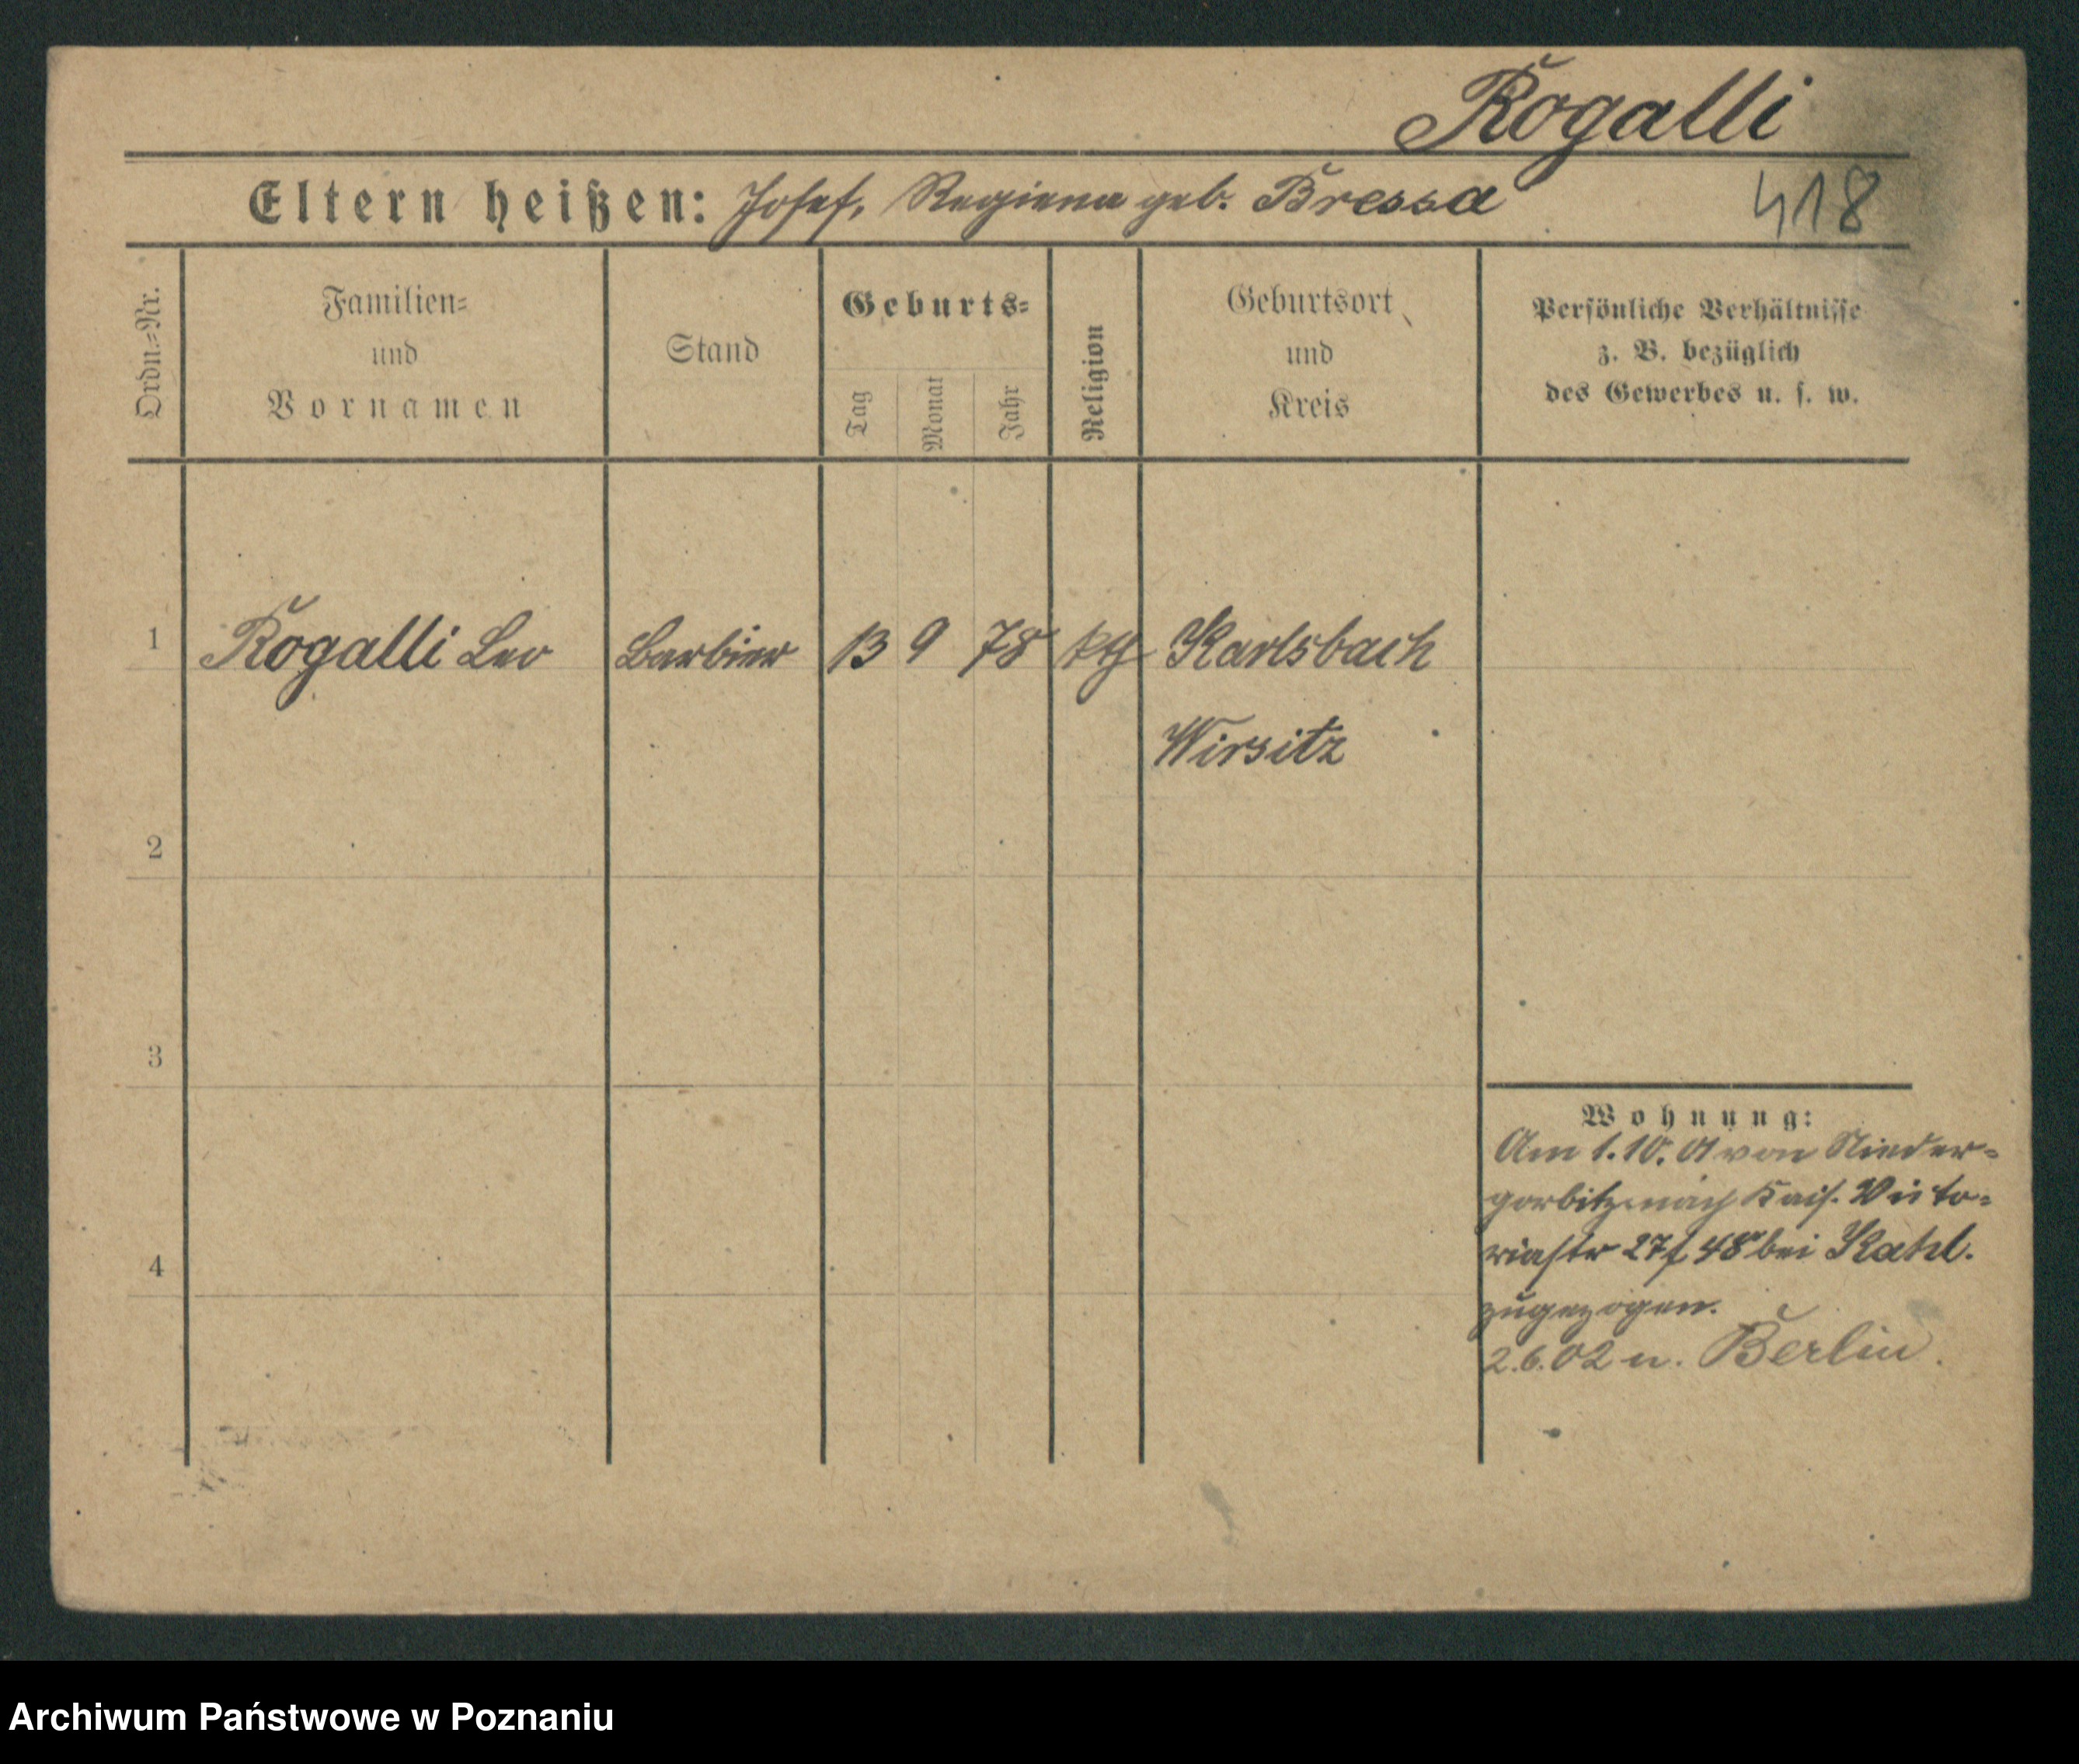 Rogalli
Eltern heißen: Josef, Regiena geb. Bressa
418
Ordn.=Nr.
Familien=
und
Vornamen
Stand
Geburts=
Tag
Monat
Jahr
Religion
Geburtsort
und
Kreis
Persönliche Verhältnisse
z. B. bezüglich
des Gewerbes u. s. w.
1 Rogalli Leo Barbier 13 9 78 kth Karlsbach
Wirsitz
2
3
4
Wohnung:
Am 1.10.01 von Nieder=
gorbitz nach Kais. Victo=
riastr 27/48 bei Kahl.
zugezogen.
2.6.02 n. Berlin.
Archiwum Państwowe w Poznaniu